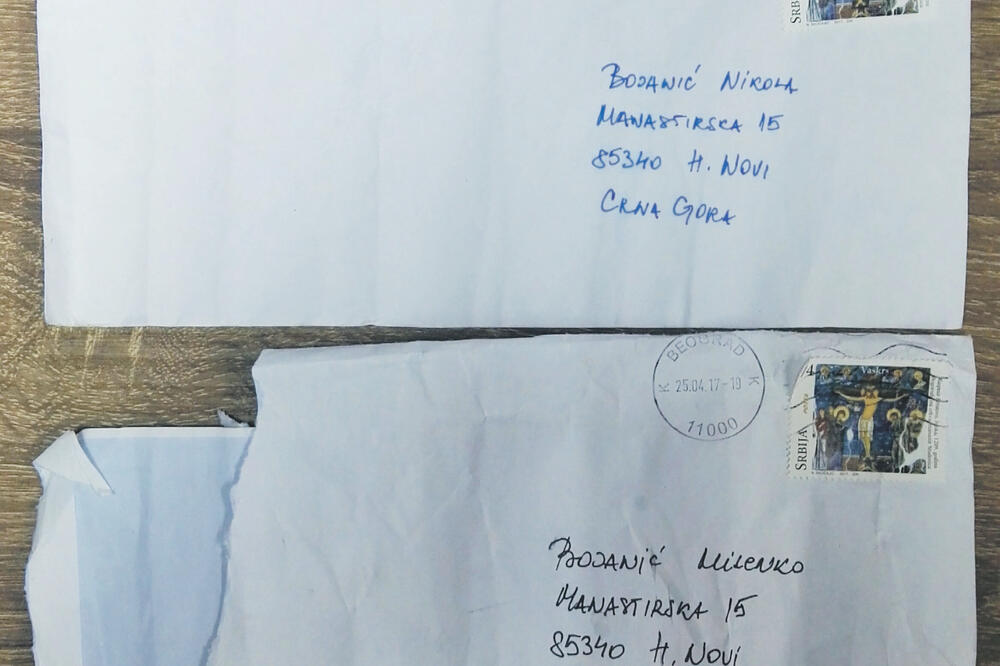 SRB
BOJANIĆ NIKOLA
MANASTIRSKA 15
85340 H. NOVI
CRNA GORA
BEOGRAD
K 25.04.17-19 K
11000
4
Vaskrs
SRBIJA
BOJANIĆ MILENKO
MANASTIRSKA 15
85340 H. NOVI